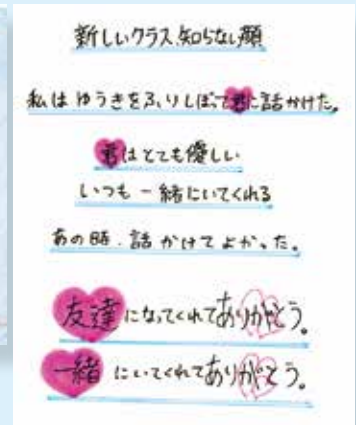 新しいクラス、知らない顔
私はゆうきをふりしぼって君に話かけた。
君はとても優しい
いつも一緒にいてくれる
あの時、話かけてよかった。
友達になってくれてありがとう。
一緒にいてくれてありがとう。